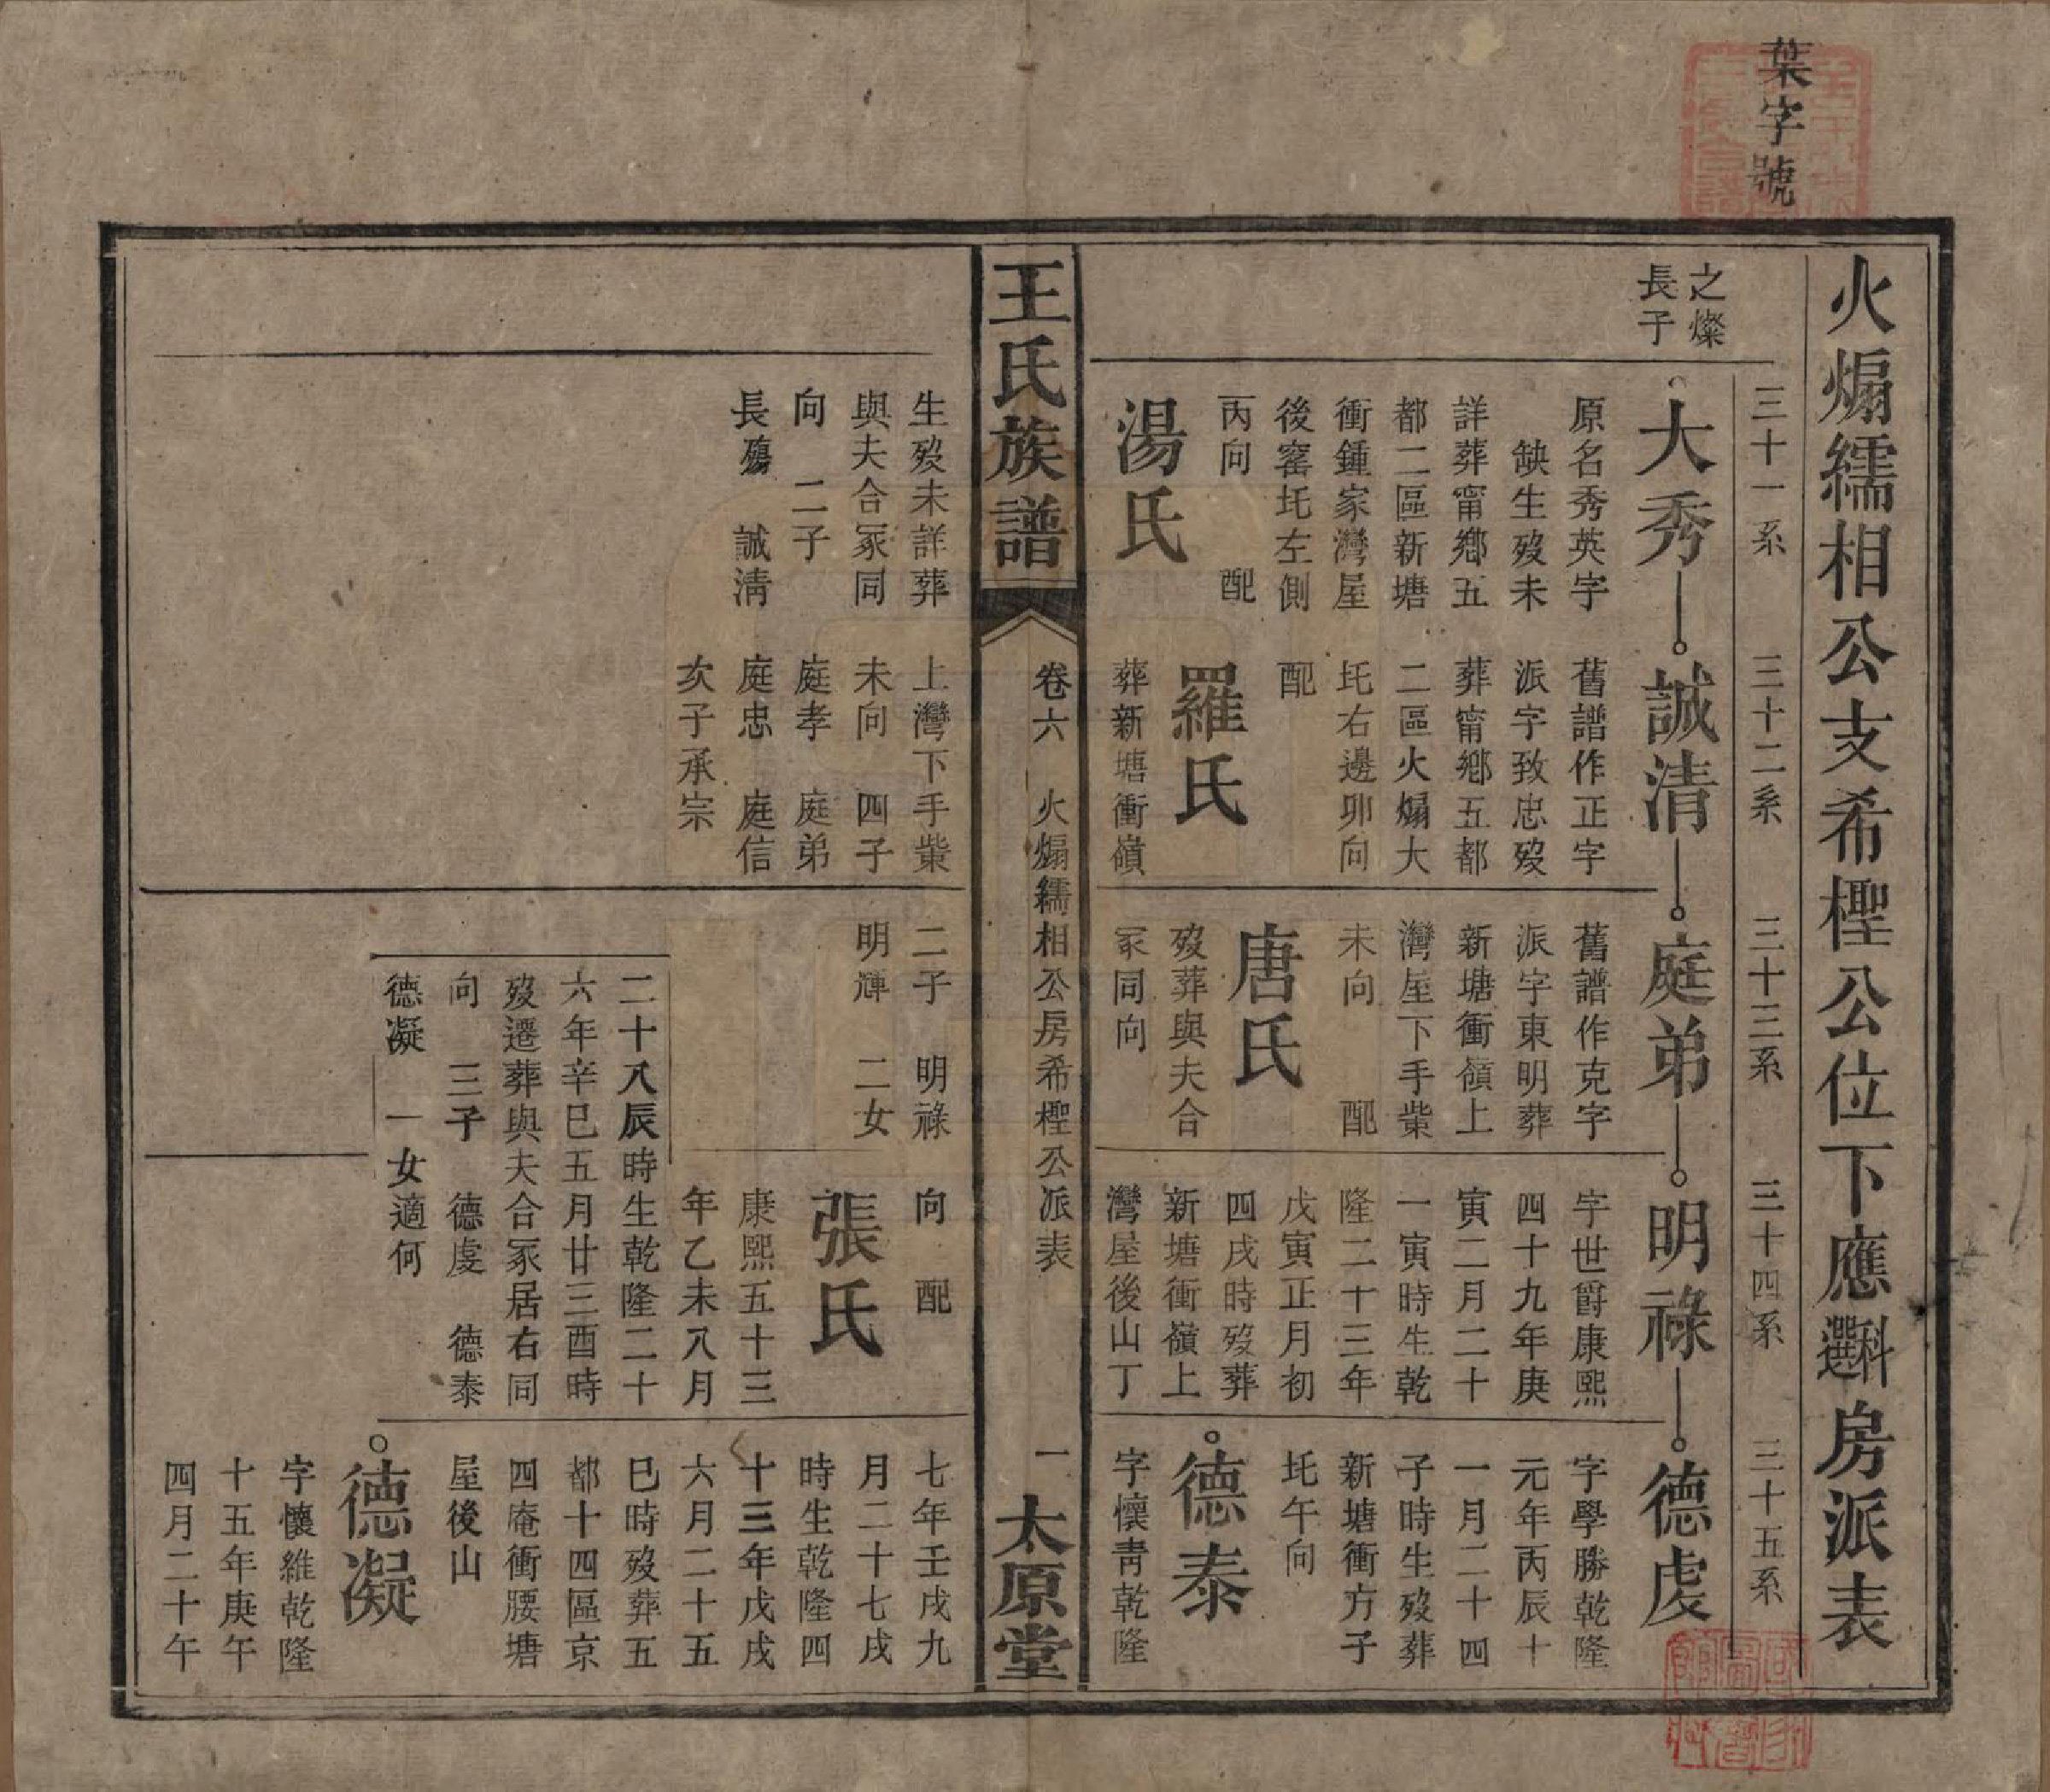 葉字號
火煽繻相公支希檉公位下應科選房派表
三十一系
三十二系
三十三系
三十四系
三十五系
之燦
長子
大秀
原名秀英字
缺生歿未
詳葬甯鄉五
都二區新塘
衝鍾家灣屋
後窰圫左側
丙向 配
湯氏
誠清
舊譜作正字
派字致忠歿
葬甯鄉五都
二區火煽大
圫右邊卯向
配
羅氏
葬新塘衝嶺
庭弟
舊譜作克字
派字東明葬
新塘衝嶺上
灣屋下手柴
未向 配
唐氏
歿葬與夫合
冢同向
明祿
字世爵康熙
四十九年庚
寅二月二十
一寅時生乾
隆二十三年
戊寅正月初
四戌時歿葬
新塘衝嶺上
灣屋後山丁
德虔
字學勝乾隆
元年丙辰十
一月二十四
子時生歿葬
新塘衝方子
圫午向
德泰
字懷青乾隆
王氏族譜
卷六 火煽繻相公房希檉公派表
一
太原堂
生歿未詳葬
與夫合冢同
向 二子
長殤 誠清
上灣下手柴
未向 四子
庭孝 庭弟
庭忠 庭信
次子承宗
二子 明祿
明輝 二女
向 配
張氏
康熙五十三
年乙未八月
二十八辰時生乾隆二十
六年辛巳五月廿三酉時
歿遷葬與夫合冢居右同
向 三子 德虔 德泰
德凝 一女適何
七年壬戌九
月二十七戌
時生乾隆四
十三年戊戌
六月二十五
巳時歿葬五
都十四區京
四庵衝腰塘
屋後山
德凝
字懷維乾隆
十五年庚午
四月二十午